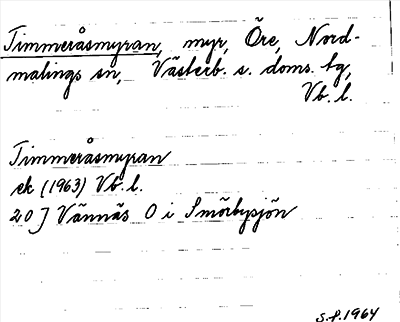 Timmeråsmyran, myr, Öre, Nord-
malings sn, Västerb. s. doms. tg,
Vb. l.
Timmeråsmyran
ek (1963) Vb. l.
20 J Vännäs O i Smörbysjön
S.f. 1964